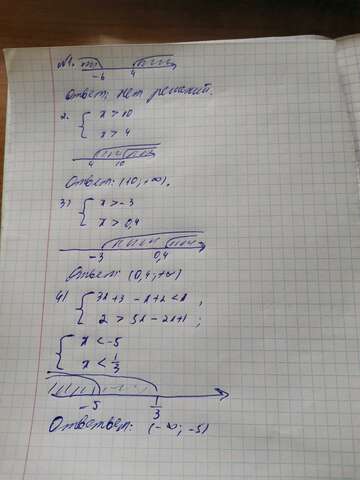 №1.
-6 4
Ответ: нет решений.
2. { x > 10
x > 4
4 10
Ответ: (10; +∞).
3) { x > -3
x > 0,4
-3 0,4
Ответ: (0,4; +∞)
4) { 3x+3 - x+2 < x ,
2 > 5x - 2x+1 ;
{ x < -5
x < 1/3
-5 1/3
Ответвет: (-∞; -5)